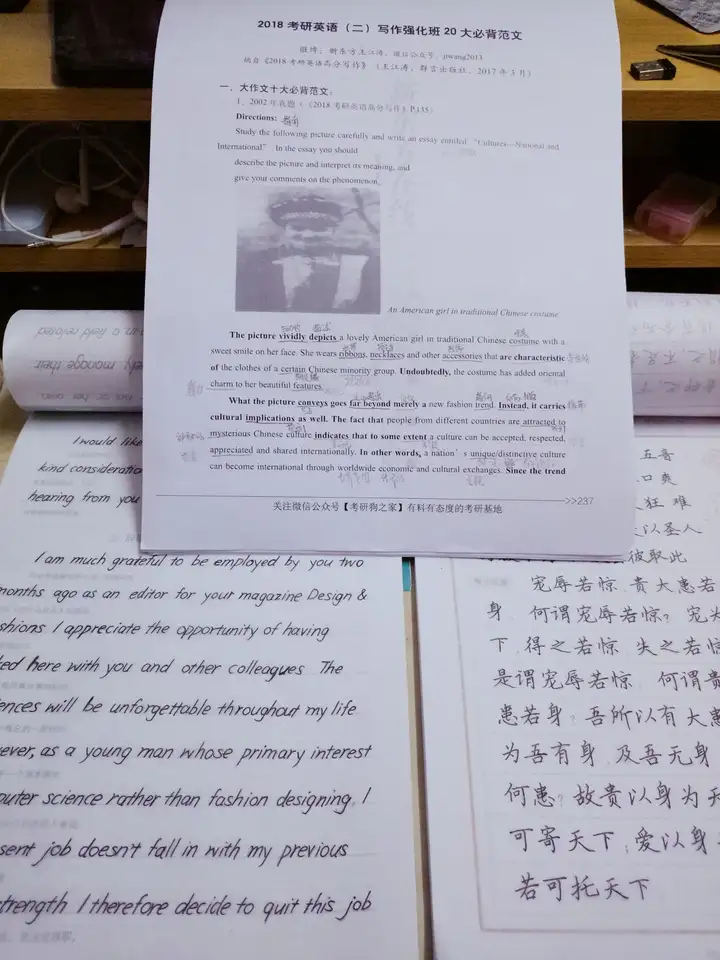 2018 考研英语（二）写作强化班 20 大必背范文
微博：新东方王江涛，微信公众号：jtwang2013
摘自《2018 考研英语高分写作》（王江涛，群言出版社，2017 年 3 月）
一、大作文十大必背范文：
1、2002 年真题（《2018 考研英语高分写作》P.135）
Directions:
Study the following picture carefully and write an essay entitled “Cultures—National and
International”. In the essay you should
describe the picture and interpret its meaning, and
give your comments on the phenomenon.
An American girl in traditional Chinese costume
The picture vividly depicts a lovely American girl in traditional Chinese costume with a
sweet smile on her face. She wears ribbons, necklaces and other accessories that are characteristic
of the clothes of a certain Chinese minority group. Undoubtedly, the costume has added oriental
charm to her beautiful features.
What the picture conveys goes far beyond merely a new fashion trend. Instead, it carries
cultural implications as well. The fact that people from different countries are attracted to
mysterious Chinese culture indicates that to some extent a culture can be accepted, respected,
appreciated and shared internationally. In other words, a nation's unique/distinctive culture
can become international through worldwide economic and cultural exchanges. Since the trend
>>237
关注微信公众号【考研狗之家】有料有态度的考研基地
I would like
kind consideratio
hearing from you
I am much grateful to be employed by you two
months ago as an editor for your magazine Design &
shions I appreciate the opportunity of having
ked here with you and other colleagues The
ences will be unforgettable throughout my life
ever, as a young man whose primary interest
puter science rather than fashion designing, I
sent job doesn't fall in with my previous
trength I therefore decide to quit this job
五音
口爽
狂 难
以圣人
彼取此
宠辱若惊 贵大患若
身 何谓宠辱若惊？宠为
下 得之若惊 失之若惊
是谓宠辱若惊 何谓贵
患若身？吾所以有大患
为吾有身 及吾无身
何患？故贵以身为天
可寄天下；爱以身
若可托天下